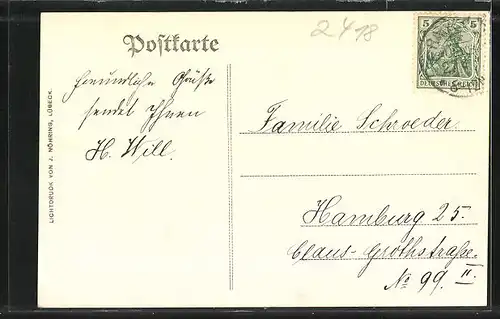 2418
Postkarte
5 5
DEUTSCHES REICH
Freundliche Grüße
sendet Ihnen
H. Will.
Familie Schroeder.
Hamburg 25.
Claus-Grothstraße.
No 99. II.
LICHTDRUCK VON J. NÖHRING, LÜBECK.